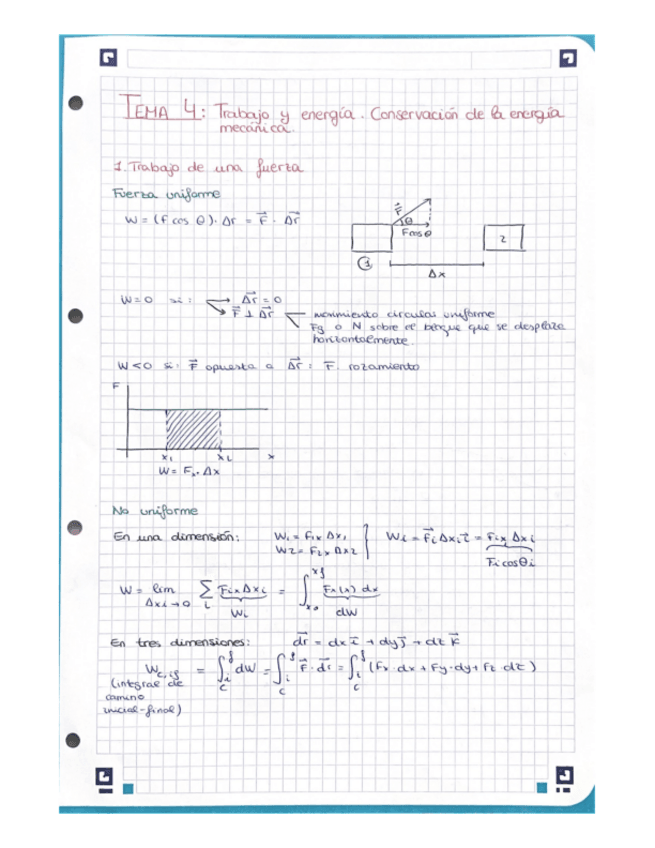 TEMA 4: Trabajo y energía. Conservación de la energía
mecánica.
1. Trabajo de una fuerza
Fuerza uniforme
W = (F cos θ)· Δr = F⃗ · Δr⃗
F⃗
θ
F cos θ
1
2
Δx
W=0 si: Δr⃗ = 0
F⃗ ⊥ Δr⃗
movimiento circular uniforme
Fg o N sobre el bloque que se desplaza
horizontalmente.
W<0 si: F⃗ opuesta a Δr⃗ : F. rozamiento
F
x₁ x₂ x
W= Fₓ· Δx
No uniforme
En una dimensión: W₁ = F₁ₓ Δx₁
W₂ = F₂ₓ Δx₂
Wi = F⃗i Δxi i⃗ = Fixi Δxi
Fi cosθi
W = lim Δxi→0 ∑i Fix Δxi = ∫x₀xf Fx(x) dx
Wi dW
En tres dimensiones: dr⃗ = dx i⃗ + dy j⃗ + dz k⃗
Wc,if = ∫if c dW = ∫if c F⃗ · dr⃗ = ∫if c (Fx · dx + Fy · dy + Fz · dz)
(integral de
camino
inicial-final)